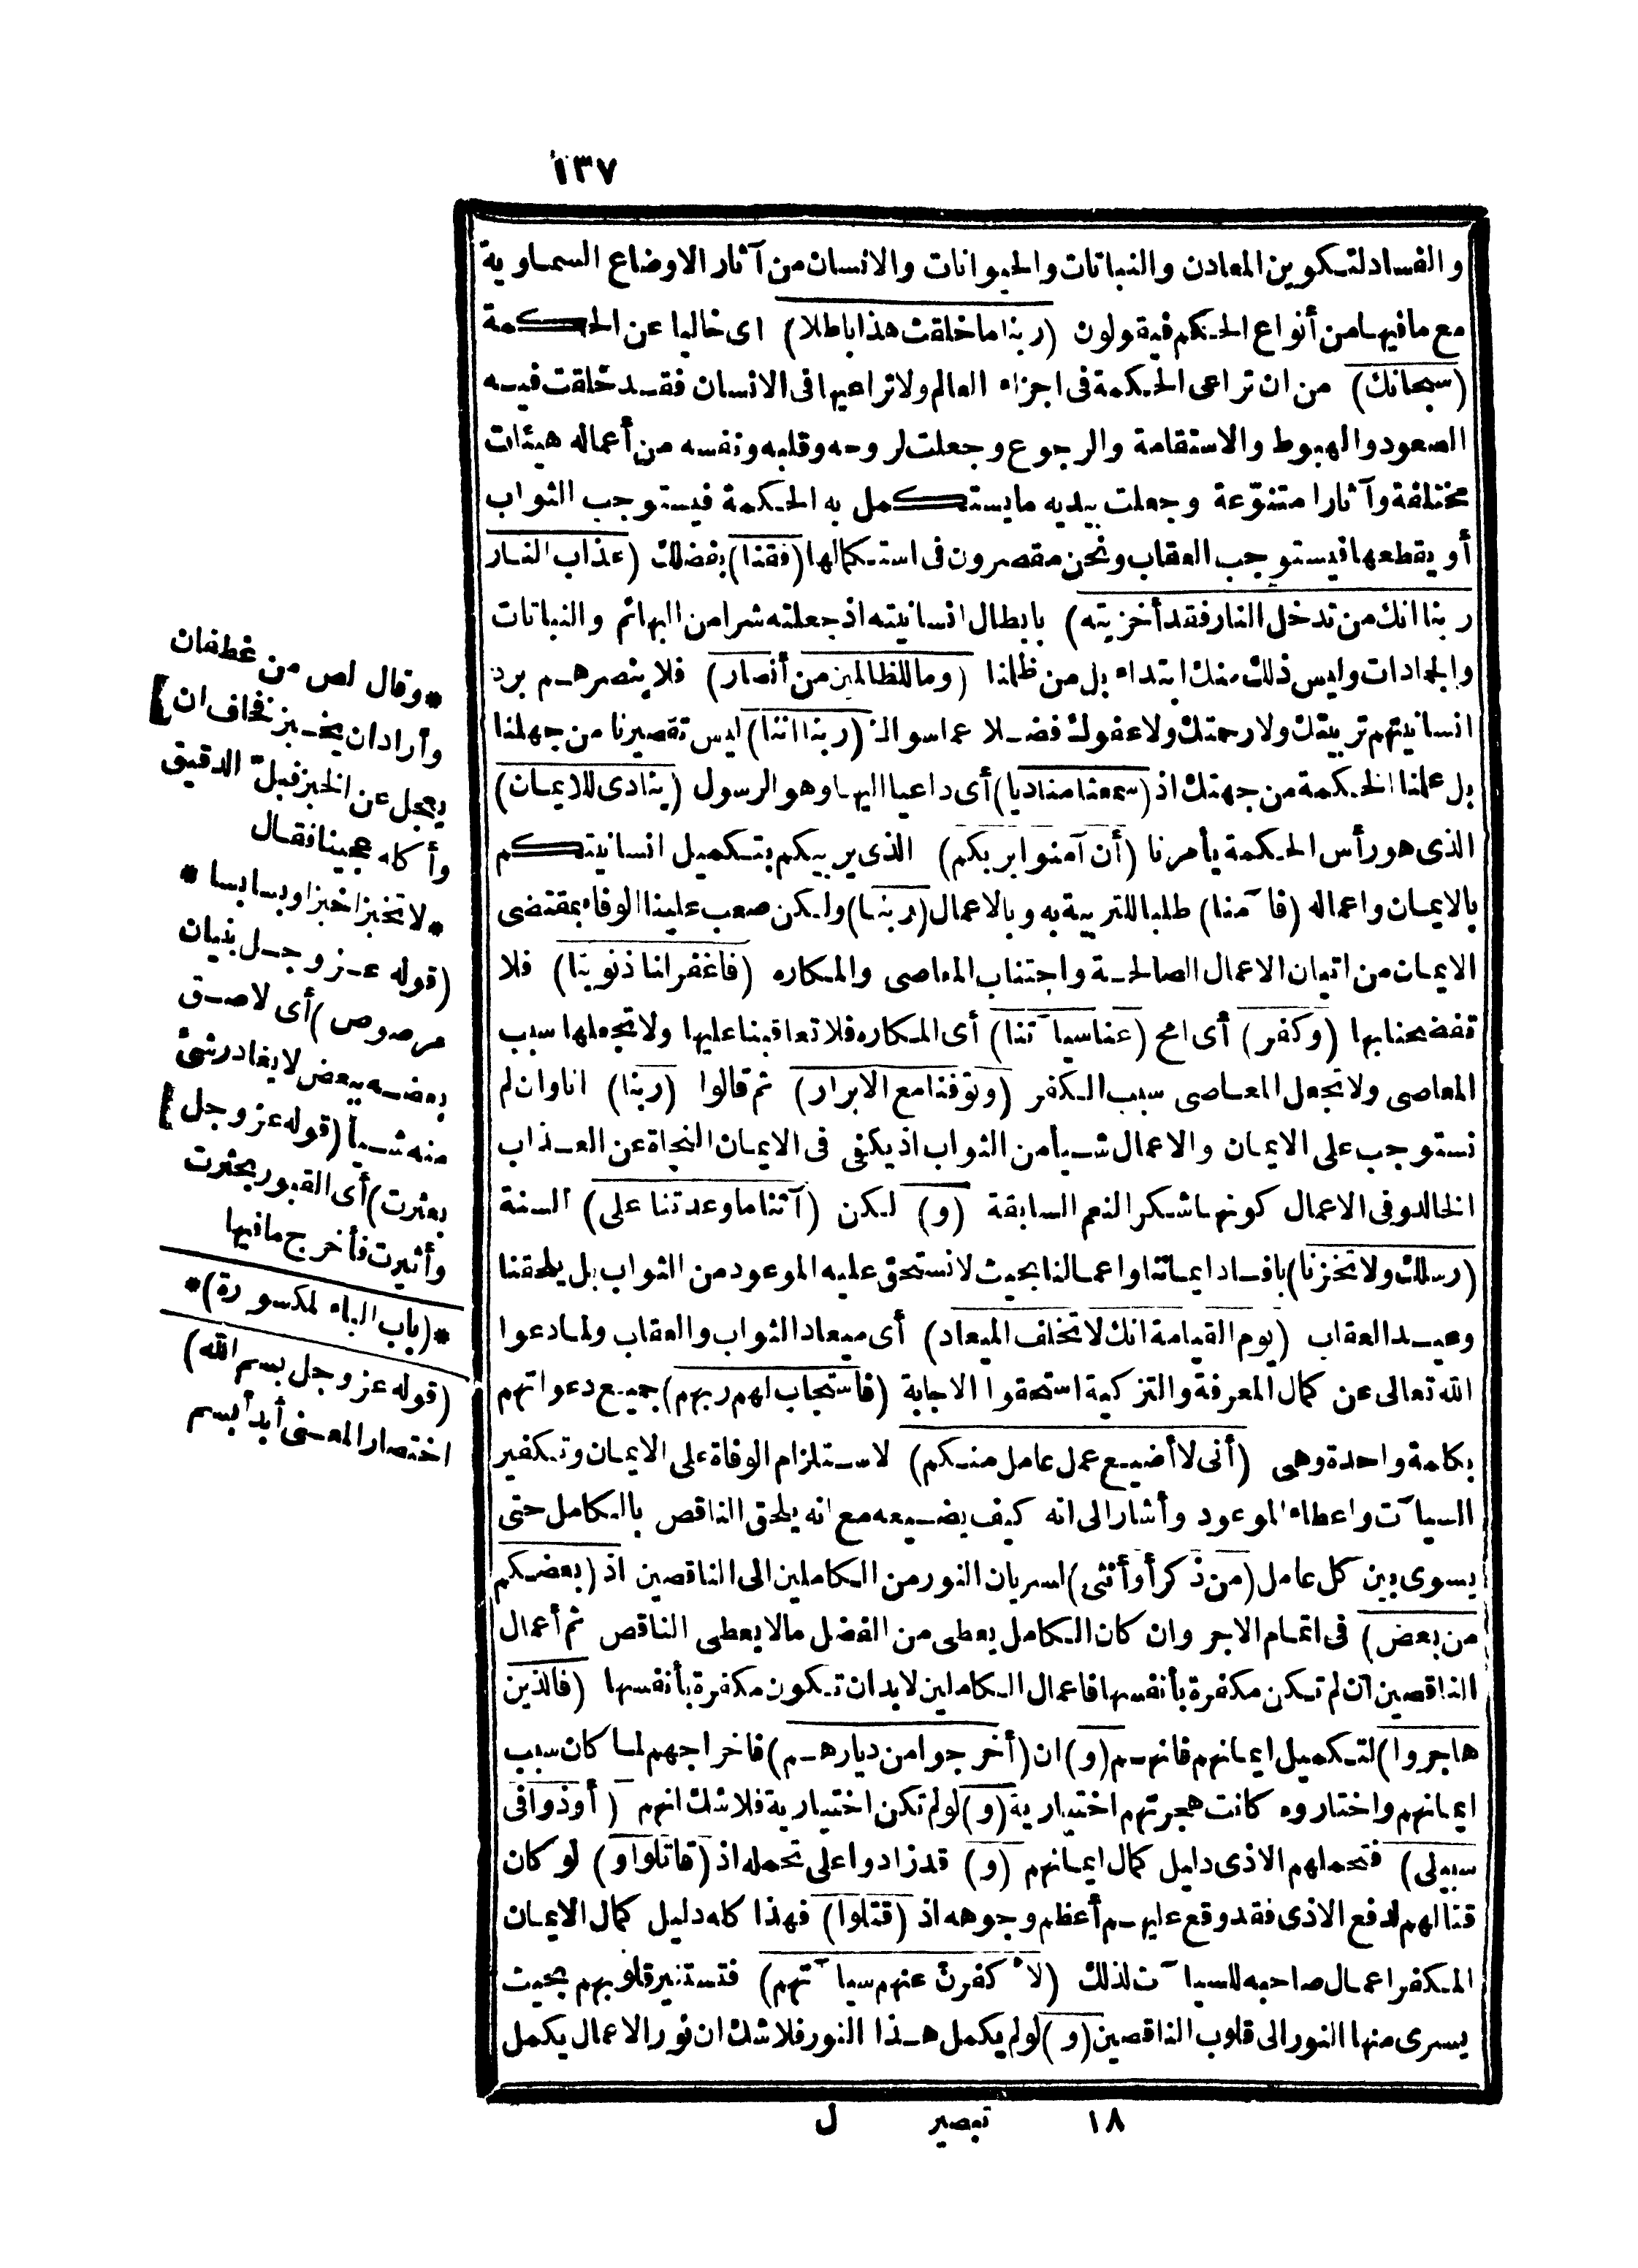 ١٣٧
والفساد لتكوين المعادن والنباتات والحيوانات والانسان من آثار الاوضاع السماوية
مع ما فيها من أنواع الحكم فيقولون (ربنا ما خلقت هذا باطلا) اى خاليا عن الحكمة
(سبحانك) من ان تراعى الحكمة فى اجزاء العالم ولا تراعيها فى الانسان فقد خلقت فيه
الصعود والهبوط والاستقامة والرجوع وجعلت لروحه وقلبه ونفسه من أعماله هيئات
مختلفة وآثارا متنوّعة وجعلت بيديه ما يستكمل به الحكمة فيستوجب الثواب
أو يقطعها فيستوجب العقاب ونحن مقصرون فى استكمالها (فقنا) بفضلك (عذاب النار
ربنا انك من تدخل النار فقد أخزيته) بابطال انسانيته اذ جعلته شرا من البهائم والنباتات
والجمادات وليس ذلك منك ابتداء بل من ظلمنا (وما للظالمين من أنصار) فلا ينصرهم برد
انسانيتهم تربيتك ولا رحمتك ولا عفوك فضلا عما سواك (ربنا اننا) ليس تقصيرنا من جهلنا
بل علمنا الحكمة من جهتك اذ (سمعنا مناديا) أى داعيا اليها وهو الرسول (ينادى للايمان)
الذى هو رأس الحكمة يأمرنا (أن آمنوا بربكم) الذى يربيكم بتكميل انسانيتكم
بالايمان واعماله (فا ٓمنا) طلبا للتربية به وبالاعمال (ربنا) ولكن صعب علينا الوفاء بمقتضى
الايمان من اتيان الاعمال الصالحة واجتناب المعاصى والمكاره (فاغفر لنا ذنوبنا) فلا
تفضحنا بها (وكفر) أى امح (عنا سيا ٓتنا) أى المكاره فلا تعاقبنا عليها ولا تجعلها سبب
المعاصى ولا تجعل المعاصى سبب الكفر (وتوفنا مع الابرار) ثم قالوا (ربنا) انا وان لم
نستوجب على الايمان والاعمال شيأ من الثواب اذ يكفى فى الايمان النجاة عن العذاب
الخالد وفى الاعمال كونها شكر النعم السابقة (و) لكن (آتنا ما وعدتنا على) ألسنة
(رسلك ولا تخزنا) بافساد ايماننا واعمالنا بحيث لا نستحق عليه الموعود من الثواب بل يلحقنا
وعيد العقاب (يوم القيامة انك لا تخلف الميعاد) أى ميعاد الثواب والعقاب ولما دعوا
الله تعالى عن كمال المعرفة والتزكية استحقوا الاجابة (فاستجاب لهم ربهم) جميع دعواتهم
بكلمة واحدة وهى (أنى لا أضيع عمل عامل منكم) لاستلزام الوفاة على الايمان وتكفير
السيا ٓت واعطاء الموعود وأشار الى انه كيف يضيعه مع انه يلحق الناقص بالكامل حتى
يسوى بين كل عامل (من ذكر أو أنثى) لسريان النور من الكاملين الى الناقصين اذ (بعضكم
من بعض) فى اتمام الاجر وان كان الكامل يعطى من الفضل ما لا يعطى الناقص ثم أعمال
الناقصين ان لم تكن مكفرة بأنفسها فاعمال الكاملين لا بد ان تكون مكفرة بأنفسها (فالذين
هاجروا) لتكميل ايمانهم فانهم (و) ان (أخرجوا من ديارهم) فاخراجهم لما كان سبب
ايمانهم واختاروه كانت هجرتهم اختيارية (و) لو لم تكن اختيارية فلا شك انهم (أوذوا فى
سبيلى) فتحملهم الاذى دليل كمال ايمانهم (و) قد زادوا على تحمله اذ (قاتلوا و) لو كان
قتالهم لدفع الاذى فقد وقع عليهم أعظم وجوهه اذ (قتلوا) فهذا كله دليل كمال الايمان
المكفر اعمال صاحبه للسيا ٓت لذلك (لأكفرنّ عنهم سيا ٓتهم) فتستنير قلوبهم بحيث
يسرى منها النور الى قلوب الناقصين (و) لو لم يكمل هذا النور فلا شك ان نور الاعمال يكمل
١٨ تبصير ل
*وقال لص من غطفان
وأراد ان يخبز فخاف ان]
يعجل عن الخبز فبلّ الدقيق
وأكله عجينا فقال
*لا تخبزا خبزا وبسا بسا*
(قوله عز وجل بنيان
مرصوص) أى لاصق
بعضه ببعض لا يغادر شئ
منه شيأ (قوله عز وجل]
بعثرت) أى القبور بحثرت
وأثيرت فأخرج ما فيها
*(باب الباء لمكسورة)*
(قوله عز وجل بسم الله)
اختصار المعنى أبدأ بسم